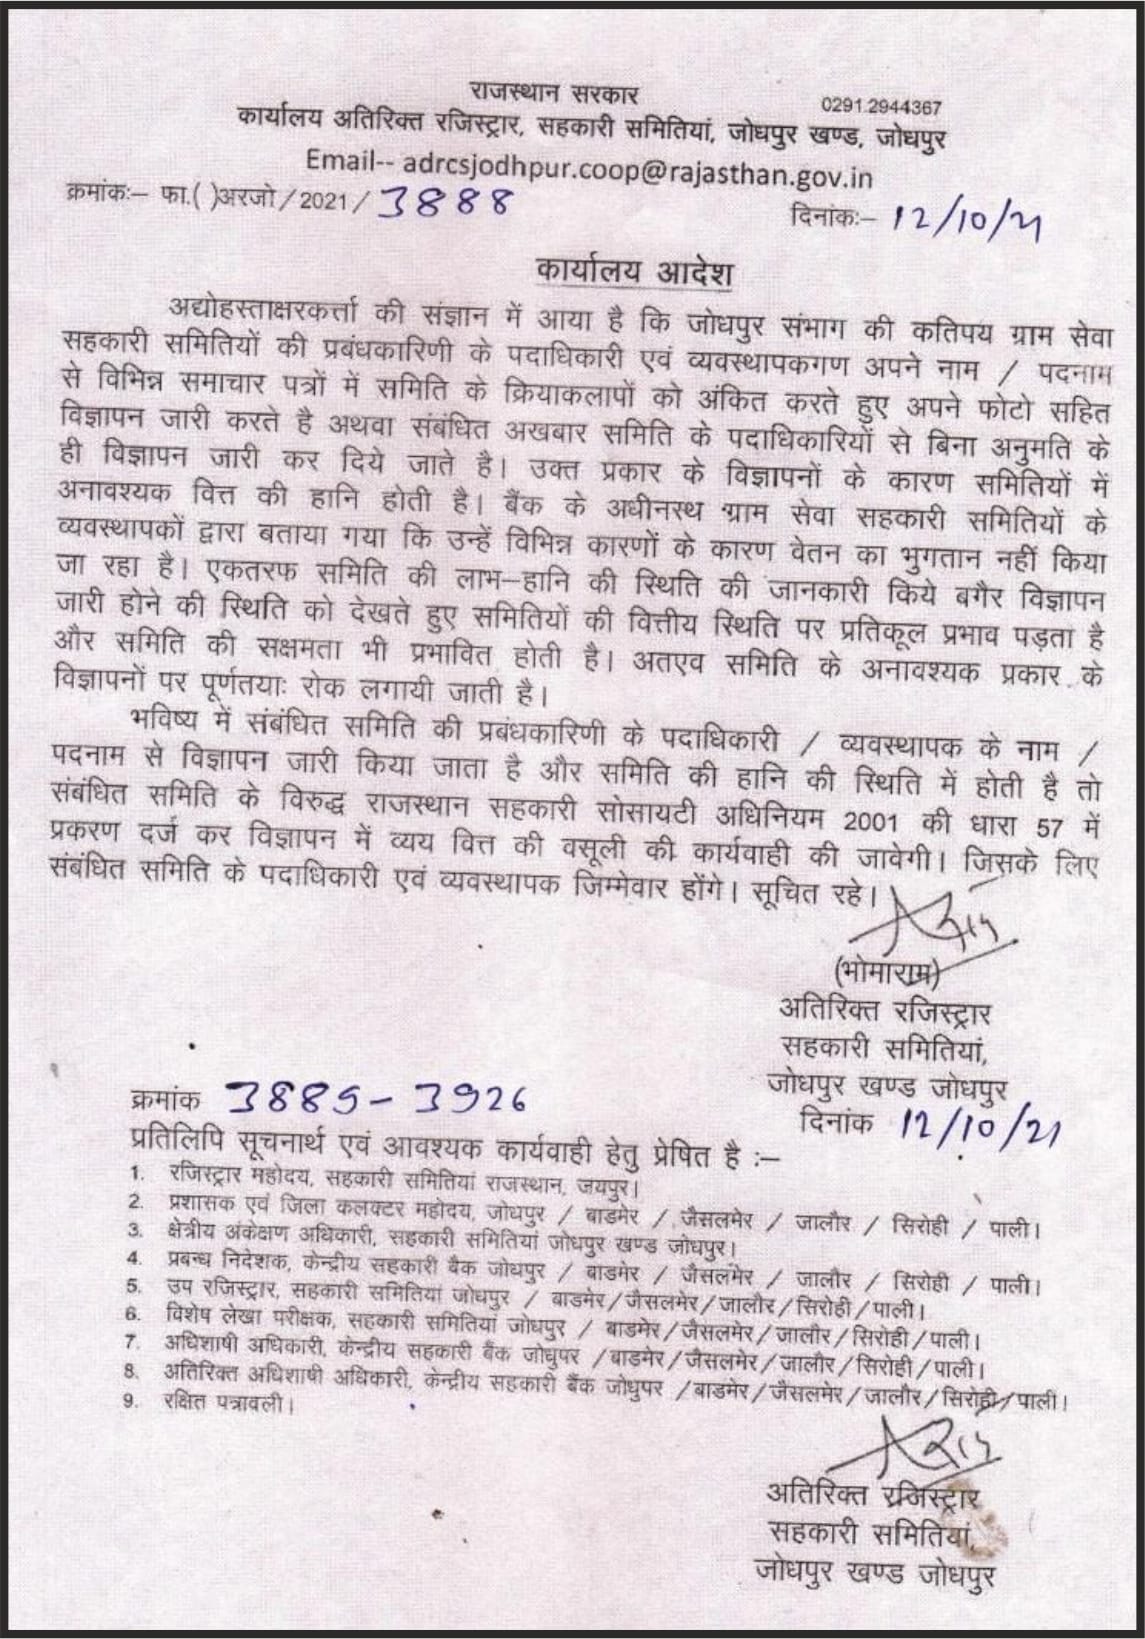 राजस्थान सरकार
0291.2944367
कार्यालय अतिरिक्त रजिस्ट्रार, सहकारी समितियां, जोधपुर खण्ड, जोधपुर
Email-- adrcsjodhpur.coop@rajasthan.gov.in
क्रमांकः– फा.( )अरजो / 2021 / 3888
दिनांकः– 12/10/21
कार्यालय आदेश
अद्योहस्ताक्षरकर्त्ता की संज्ञान में आया है कि जोधपुर संभाग की कतिपय ग्राम सेवा
सहकारी समितियों की प्रबंधकारिणी के पदाधिकारी एवं व्यवस्थापकगण अपने नाम / पदनाम
से विभिन्न समाचार पत्रों में समिति के क्रियाकलापों को अंकित करते हुए अपने फोटो सहित
विज्ञापन जारी करते है अथवा संबंधित अखबार समिति के पदाधिकारियों से बिना अनुमति के
ही विज्ञापन जारी कर दिये जाते है। उक्त प्रकार के विज्ञापनों के कारण समितियों में
अनावश्यक वित्त की हानि होती है। बैंक के अधीनस्थ ग्राम सेवा सहकारी समितियों के
व्यवस्थापकों द्वारा बताया गया कि उन्हें विभिन्न कारणों के कारण वेतन का भुगतान नहीं किया
जा रहा है। एकतरफ समिति की लाभ–हानि की स्थिति की जानकारी किये बगैर विज्ञापन
जारी होने की स्थिति को देखते हुए समितियों की वित्तीय स्थिति पर प्रतिकूल प्रभाव पड़ता है
और समिति की सक्षमता भी प्रभावित होती है। अतएव समिति के अनावश्यक प्रकार के
विज्ञापनों पर पूर्णतयाः रोक लगायी जाती है।
भविष्य में संबंधित समिति की प्रबंधकारिणी के पदाधिकारी / व्यवस्थापक के नाम /
पदनाम से विज्ञापन जारी किया जाता है और समिति की हानि की स्थिति में होती है तो
संबंधित समिति के विरुद्ध राजस्थान सहकारी सोसायटी अधिनियम 2001 की धारा 57 में
प्रकरण दर्ज कर विज्ञापन में व्यय वित्त की वसूली की कार्यवाही की जावेगी। जिसके लिए
संबंधित समिति के पदाधिकारी एवं व्यवस्थापक जिम्मेवार होंगे। सूचित रहे।
(भोमाराम)
अतिरिक्त रजिस्ट्रार
सहकारी समितियां,
जोधपुर खण्ड जोधपुर
क्रमांक 3889 – 3926
दिनांक 12/10/21
प्रतिलिपि सूचनार्थ एवं आवश्यक कार्यवाही हेतु प्रेषित है :–
1. रजिस्ट्रार महोदय, सहकारी समितियां राजस्थान, जयपुर।
2. प्रशासक एवं जिला कलक्टर महोदय, जोधपुर / बाडमेर / जैसलमेर / जालौर / सिरोही / पाली।
3. क्षेत्रीय अंकेक्षण अधिकारी, सहकारी समितियां जोधपुर खण्ड जोधपुर।
4. प्रबन्ध निदेशक, केन्द्रीय सहकारी बैंक जोधपुर / बाडमेर / जैसलमेर / जालौर / सिरोही / पाली।
5. उप रजिस्ट्रार, सहकारी समितियां जोधपुर / बाडमेर/जैसलमेर/जालौर/सिरोही/पाली।
6. विशेष लेखा परीक्षक, सहकारी समितियां जोधपुर / बाडमेर/जैसलमेर/जालौर/सिरोही/पाली।
7. अधिशाषी अधिकारी, केन्द्रीय सहकारी बैंक जोधुपर /बाडमेर/जैसलमेर/जालौर/सिरोही/पाली।
8. अतिरिक्त अधिशाषी अधिकारी, केन्द्रीय सहकारी बैंक जोधुपर /बाडमेर/जैसलमेर/जालौर/सिरोही/पाली।
9. रक्षित पत्रावली।
अतिरिक्त रजिस्ट्रार
सहकारी समितियां,
जोधपुर खण्ड जोधपुर